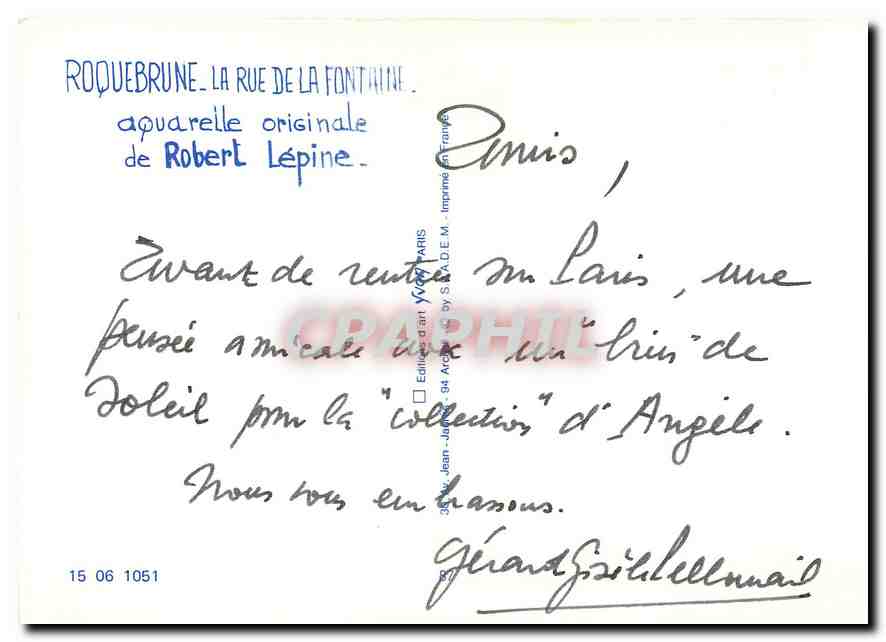 ROQUEBRUNE_LA RUE DE LA FONTAINE_
aquarelle originale
de Robert Lépine_
Amis,
Avant de rentrer sur Paris, une
pensée amicale avec un "brin" de
soleil pour la "collection" d'Angèle.
Nous vous embrassons.
Gérard Gisèle
Editions d'art YVON PARIS
Av. Jean - 94 © by S.P.A.D.E.M. - Imprimé en France
CPAPHIL
15 06 1051
87